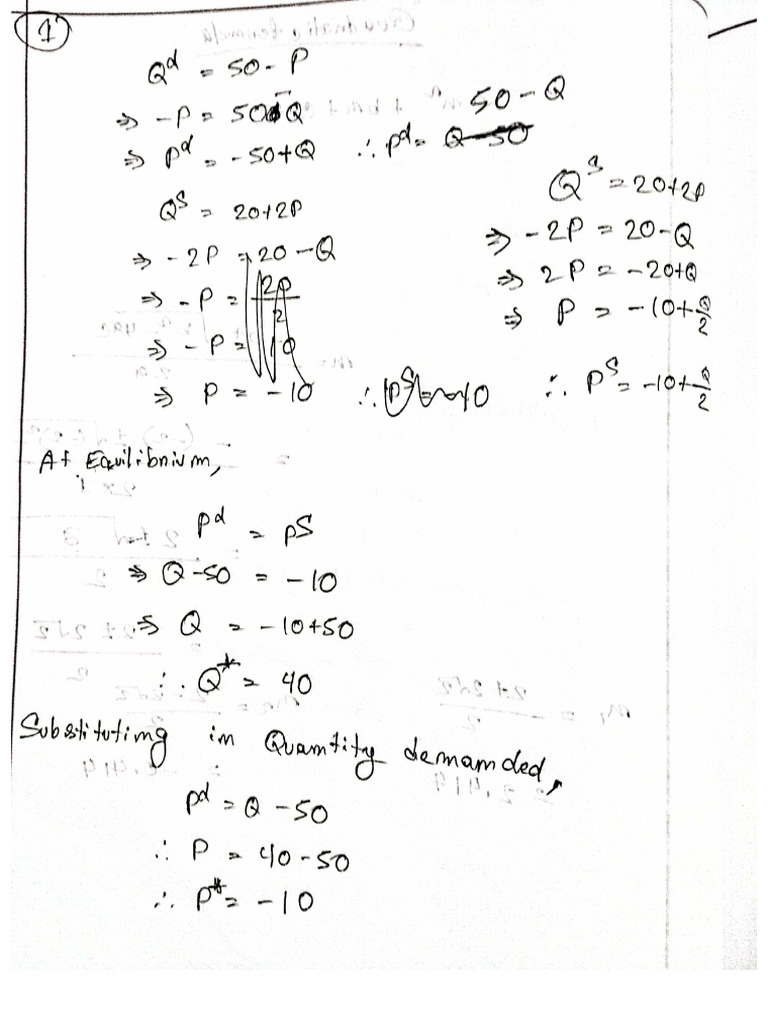 1
Qᵈ = 50 - P
⇒ -P = 50 - Q
⇒ Pᵈ = -50+Q ∴ Pᵈ = 50-Q
Qˢ = 20+2P
⇒ -2P = 20-Q
⇒ -P = 20/2
⇒ -P = 10
⇒ P = -10
Qˢ = 20+2P
⇒ -2P = 20-Q
⇒ 2P = -20+Q
⇒ P = -10+Q/2
∴ Pˢ = -10+Q/2
At Equilibrium,
Pᵈ = PS
⇒ Q-50 = -10
⇒ Q = -10+50
∴ Q* = 40
Substituting in Quantity demanded,
Pᵈ = Q - 50
∴ P = 40-50
∴ P* = -10